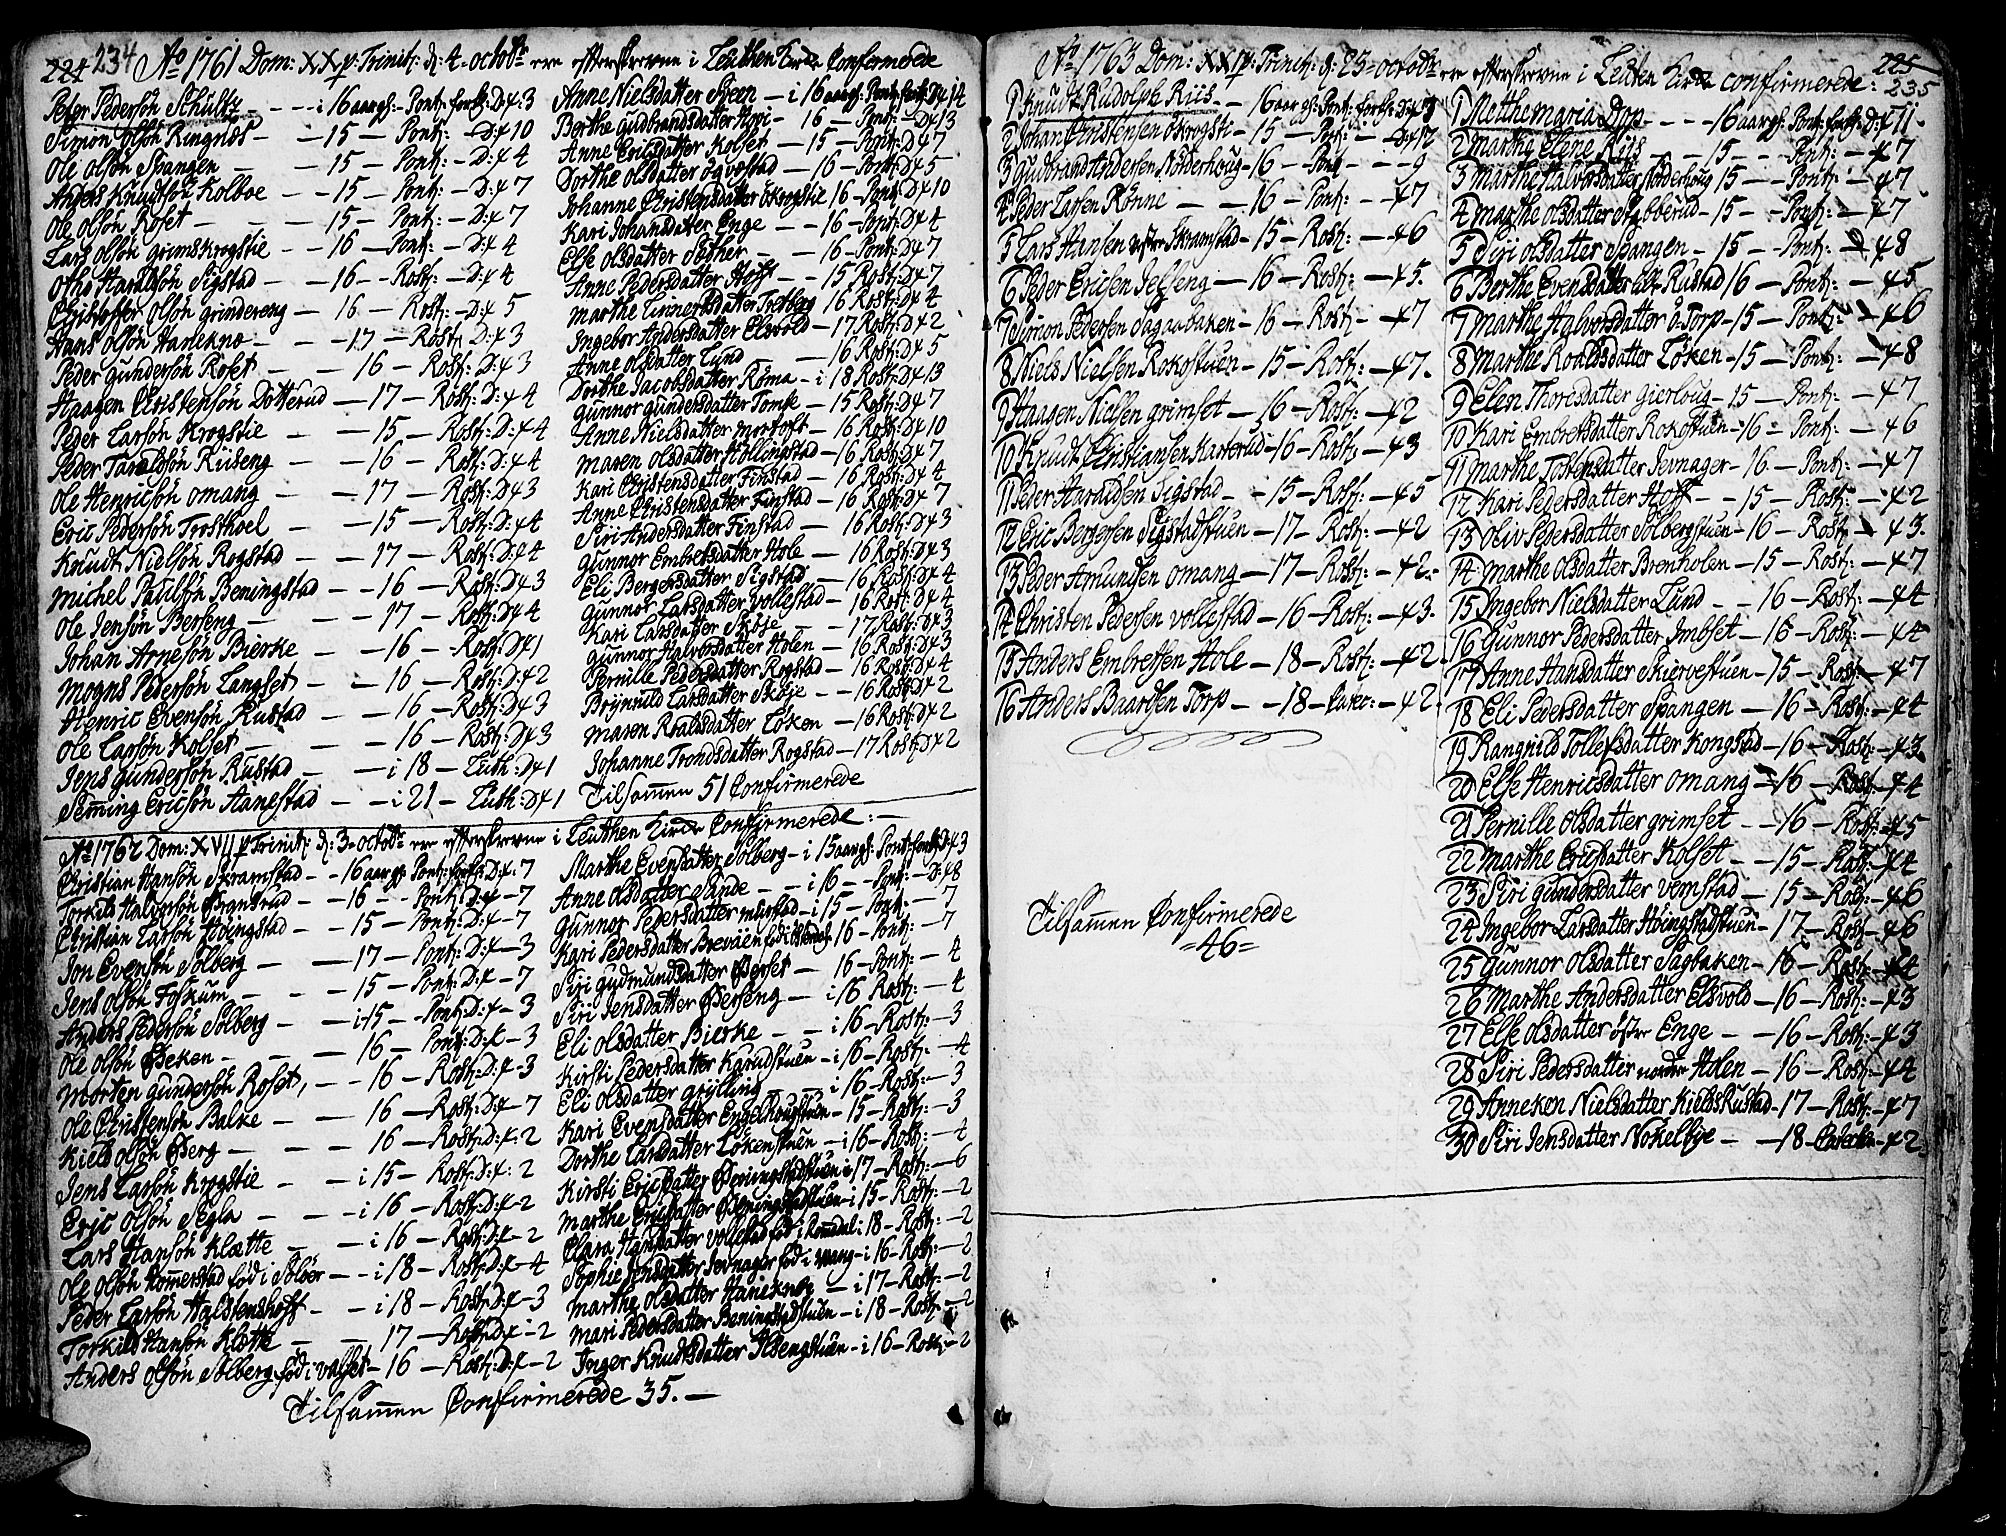 224 234 Aº 1761 Dom: XX p: Trinit: d: 4 octobr ere efterskrevne i Leuthen Kirke Confirmerede
Peter Pedersön Schultz - - - i 16 aargl: Pont: forkl: D: 43
Simon olsön Ringnæs - 15 - Pont: - D: 410
Ole olsön Spangen - - 15 - Pont: - D: 44
Anders Knudtsön Kolboe - - 15 - Pont: - D: 47
Ole olsön Roset - - 15 - Pont: - D: 47
Lars olsön grimskrogstie - - 16 - Pont: - D: 44
Otho Haralsön Sigstad - - 16 - Rost: - D: 44
Christoffer olsön grindereng - 16 - Rost: - D: 45
Hans olsön Hanekno - - 17 - Rost: D: 43
Peder gundersön Roset - - 16 - Rost: D: 43
Haagen Christensön Dötterud - 17 - Rost: D: 44
Peder Larsön Krogstie - - 15 - Rost: D: 44
Peder Taralsön Riiseng - - 16 - Rost: D: 44
Ole Henricsön omang - - 17 - Rost: D43
Eric Pedersön Trosthoel - 15 - Rost: D: 44
Knudt Nielsön Rogstad - - 17 - Rost: D: 44
Michel Paulsön Beningstad - - 16 - Rost: D43
Ole Jensön Berseng - - 17 - Rost: D44
Johan Arnesön Bierke - - 16 - Rost: D41
Mogns Pedersön Langset - - 16 - Rost: D: 42
Henric Evensön Rustad - - 16 - Rost: D43
Ole Larsön Kolset - - 16 - Rost: D43
Jens gundersön Rustad - - i 18 - Luth: D41
Semming Ericsön Aanestad - - i 21 - Luth: D41
Anne Nielsdatter Steen - i 16 aargl: Pont: forkl: D414
Berthe gudbrandsdatter Hovi - 16 - Pont: - D43
Anne Ericsdatter Kolset - 15 - Pont: D47
Dorthe olsdatter ögvolstad - 16 - Pont: D45
Johanne Christensdatter ökrogstie 16 - Pont: D410
Kari Johansdatter Enge - - 16 - Pont: D44
Else olsdatter Sæther - - 16 - Pont: D47
Anne Pedersdatter Hoff - - 15 Rost: D47
Marthe Linnersdatter Torberg 16 Rost: D44
Ingebor Andersdatter Elsvold - 17 Rost: D42
Anne olsdatter Lund - - 16 Rost: D45
Dorthe Jacobsdatter Röma - i 18 Rost: D413
Gunnor gundersdatter Tomte - 15 Rost: D47
Anne Nielsdatter mortoft - 16 Rost: D410
Maren olsdatter Hollingstad - 16 Rost: D47
Kari Christensdatter Finstad - 16 Rost: D44
Anne Christensdatter Finstad - 16 Rost: D47
Siri Andersdatter Finstad - 16 Rost: D43
Gunnor Embretsdatter Hole - 16 Rost: D43
Eli Bergersdatter Sigstad - 16 Rost: D44
Gunnor Larsdatter Vollestad - 16 Rost: D44
Kari Larsdatter Sköje - - 17 Rost: D43
Gunnor Halvorsdatter Holen - 16 Rost: D43
Pernille Pedersdatter Rogstad - 16 Rost: D44
Brynnild Larsdatter Sköje - - 16 Rost: D42
Maren Roalsdatter Löken - 16 Rost: D42
Johanne Trondsdatter Rogstad - 17 Rost: D42
Tilsamen 51 Confirmerede
Aº 1762 Dom: XVII p Trinit: d: 3 octobr ere efterskrevne i Leuthen Kirke Confirmerede: -
Christian Hansön Skramstad - - 16 aargl: Pont: forkl: D: 4 - 7
Torkild Halvorsön Grønsrud - - 16 - - Pont: D: 4 - 7
Christian Larsön Hvingstad - - 15 - Pont: D: 4 - 7
Jon Evensön Solberg - - 17 - Pont: D: 4 - 3
Jens olsön Foskum - - 15 - Pont: D: 4 - 7
Anders Pedersön Solberg - - i 15 - - Pont: D: 4 - 3
Ole olsön Beken - - 16 - Pont: D: 4 - 3
Morten gundersön Roset, - - 16 - Rost: D: 4 - 3
Ole Christensön Balke - - 16 - Rost: D: 4 - 7
Kield olsön Berg - - 16 - Rost: D: 4 - 2
Jens Larsön Krogstie - - i 15 - Rost: D: 4: 2
Eric olsön Segla - - i 16 - Rost: D: 4 - 2
Lars Hansön Klætte - - i 16 - Rost: D: 4 - 2
Ole olsön Homerstad föd i Solöer - - i 18 - Rost: D: 4 - 4
Peder Larsön Halstenshoff - - i 18 - Rost: D: 4 - 3
Torkild Hansön Klætte - - 17 - Rost: D: 4 - 2
Anders olsön Solberg föd i valset - 16 - Rost: D: 4 - 2
Marthe Evensdatter Solberg - i 15 aargl: Pont: forkl: D43
Anne olsdatter Sande - - i 16 - - Pont: - D: 48
Gunnor Pedersdatter murstad - i 15 - Pont: - 7
Kari Pedersdatter Brevæen föd i 16 - Pont: - 7
Siri gudmundsdatter Berset - 16 - Pont: - 4
Siri Jensdatter Berseng - i 16 Rost: - 4
Eli olsdatter Bierke - - i 16 - Rost: - 3
Kirsti Pedersdatter Karudstuen - i 16 - Rost: - 4
Eli olsdatter grylling - - i 16 - Rost: - 3
Kari Evensdatter Engelhougstuen - 15 - Rost: - 3
Dorthe Larsdatter Lökenstuen - i 16 - Rost: - 4
Kirsti Ericsdatter Beningstadstuen i 17 - Rost: - 6
Marthe Ericsdatter Beningstadstuen - i 15 - Rost: - 2
Clara Hansdatter vollestad föd i Romdal i 18 - Rost: - 2
Sophie Jensdatter Jevnager föd i wang - i 16 - Rost: - 2
Marthe olsdatter Haneknoe - i 17 - Rost: - 2
Mari Pedersdatter Beningstadstuen - i 18 - Rost: - 2
Inger Knudtsdatter Ilsengstuen - i 16 - Rost: - 2
Tilsamen Confirmerede 35. -
Aº 1763 Dom: XXI p: Trinit: d: 23 octobr ere efterskrevne i Leuten Kirke confirmerede: 225 235
1 Knudt Rudolph Riis - - 16 aargl: Pont: forkl: D: 413
2 Johan Christensen ökrogsti - 15 - Pont: - D: 412
3 Gudbrand Andersen Nöderhoug - 16 - Pont: - - - 9
4 Peder Larsen Rönne - - 16 - Pont: - - 47
5 Lars Hansen østre Skramstad - 15 - Rost: - 46
6 Peder Ericsen Jelseng - 16 - Rost: - 45.
7 Simon Pedersen Sagaabaken - 16 - Rost: - 47
8 Niels Nielsen Rokostuen - 15 - Rost: - 47.
9 Haagen Nielsen grimset - 16 - Rost: - 42
10 Knudt Christiansen Harterud - 16 - Rost: - 43
11 Peder Haraldsen Sigstad - - 15 - Rost: - 45
12 Eric Bergersen Sigstadstuen - 17 - Rost: - 42
13 Peder Amundsen omang - 17 - Rost: - 42.
14 Christen Pedersen vollestad - 16 - Rost: - 43.
15 Anders Embretsen Hole - 18 - Rost: - 42.
16 Anders Baardsen Torp - - 18 - - 42.
Tilsamen Confirmerede
= 46 =
1 Metthe maria Dop - - - 16 aargl: Pont: forkl: D: 411
2 Marthe Elene Riis - - 15 - - Pont: - 47
3 Marthe Halvorsdatter Nöderhoug 15 - - Pont: - 47
4 Marthe olsdatter Stabberud - 15 - - Pont: - 47
5 Siri olsdatter Spangen - 15 - - Pont: - 48
6 Berthe Evensdatter Rustad 16 - Pont: - 45
7 Marthe Halvorsdatter ö. Torp - 15 - Pont: - 46
8 Marthe Roaldsdatter Löken - 15 - Pont: - 48
9 Elen Thoresdatter gierloug - 15 - Pont: - 47
10 Kari Embretsdatter Rokostuen - 16 - Pont: - 46
11 Marthe Tostensdatter Jevnager - 16 - Pont: - 47
12 Kari Pedersdatter Hoff - - 15 - Rost: - 42
13 Oliv Pedersdatter Solbergstuen - 16 - Rost: - 43.
14 Marthe olsdatter Brenholen - 15 - Rost: - 47
15 Ingebor Nielsdatter Lund - - 16 - Rost: - 44
16 Gunnor Pedersdatter Imbset - 16 - Rost: - 44
17 Anne Hansdatter Skiervestuen - 15 - Rost: - 47
18 Eli Pedersdatter Spangen - 16 - Rost: - 44
19 Rangnild Tollefsdatter Kongstad - 16 - Rost: - 43.
20 Else Henricsdatter omang - 16 - Rost: - 44
21 Pernille olsdatter grimset - - 16 - Rost: - 45
22 Marthe Ericsdatter Kolset - - 15 - Rost: - 44
23 Siri gundersdatter vemstad - 15 - Rost: - 46
24 Ingebor Larsdatter Hvingstadstuen - 17 - Rost: - 46
25 Gunnor olsdatter Sagbaken - 16 - Rost: - 44
26 Marthe Andersdatter Elsvold - 16 - Rost: - 43
27 Else olsdatter östre Enge - - 16 - Rost: - 43
28 Siri Pedersdatter nordre Holen - 16 - Rost: - 44
29 Anneken Nielsdatter KielsRustad - 17 - Rost: - 47
30 Siri Jensdatter Nokelbye - - 18 - - 42.